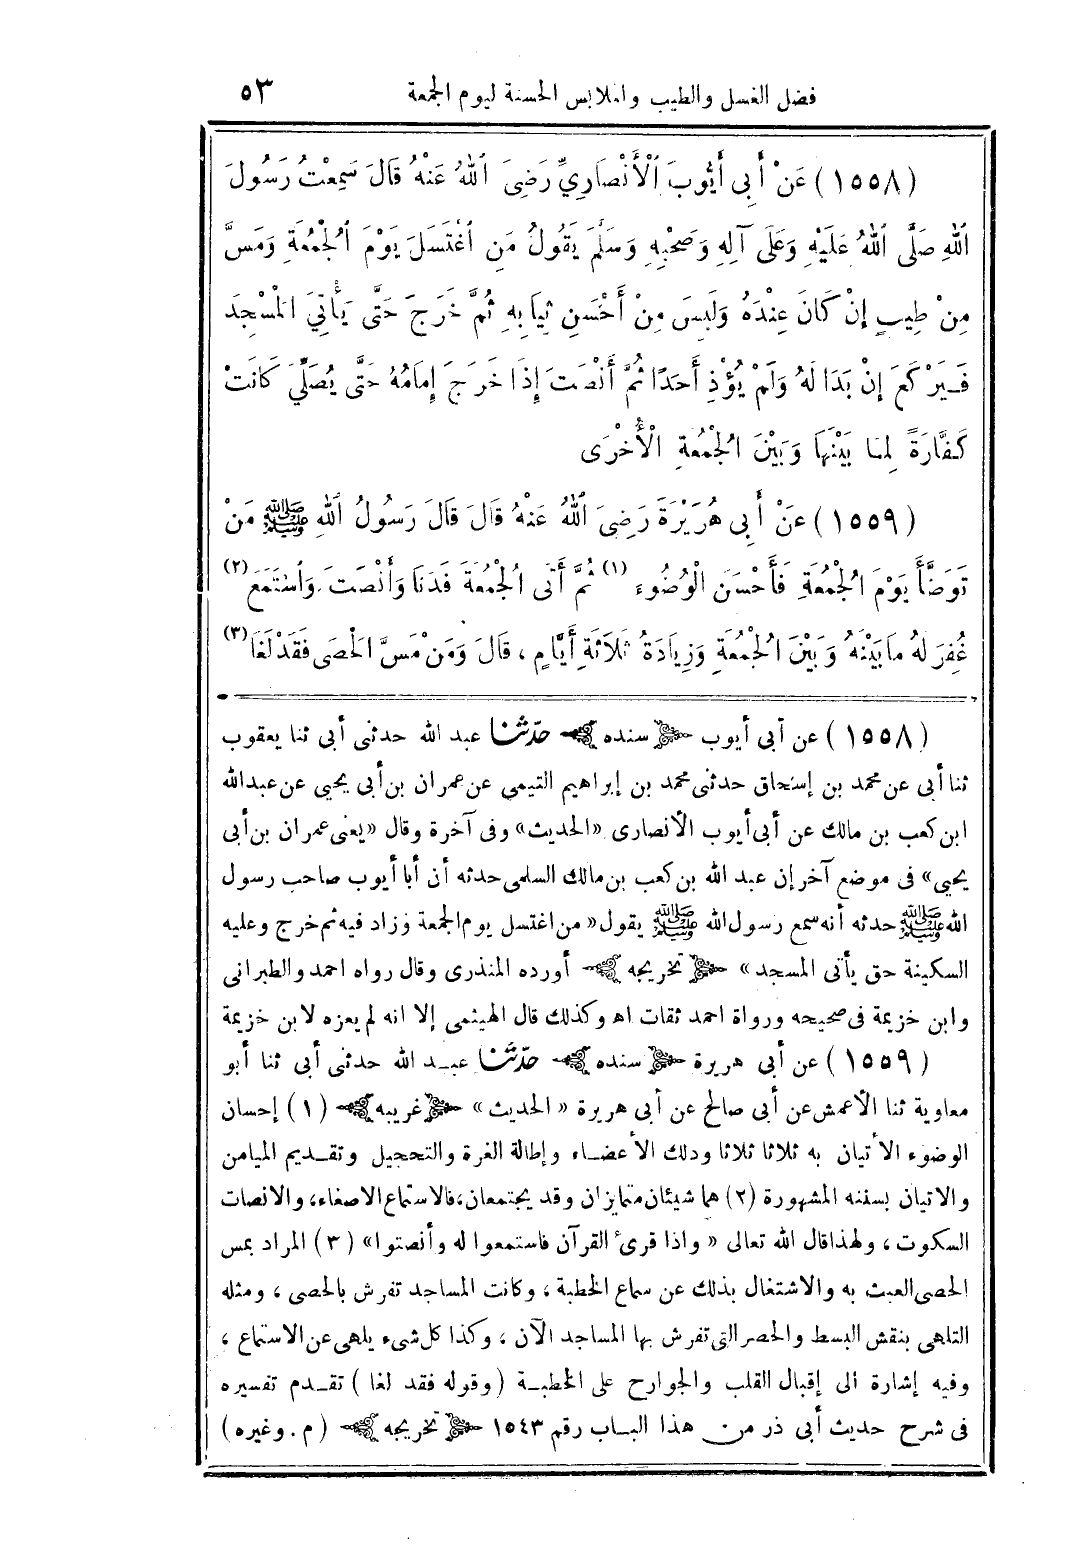 فضل الغسل والطيب والملابس الحسنة ليوم الجمعة ٥٣
(١٥٥٨) عَنْ أَبِى أَيُّوبَ الْأَنْصَارِىِّ رَضِىَ اللهُ عَنْهُ قَالَ سَمِعْتُ رَسُولَ
اللهِ صَلَّى اللهُ عَلَيْهِ وَعَلَى آلِهِ وَصَحْبِهِ وَسَلَّمَ يَقُولُ مَنِ اغْتَسَلَ يَوْمَ الْجُمُعَةِ وَمَسَّ
مِنْ طِيبٍ إِنْ كَانَ عِنْدَهُ وَلَبِسَ مِنْ أَحْسَنِ ثِيَابِهِ ثُمَّ خَرَجَ حَتَّى يَأْتِىَ الْمَسْجِدَ
فَيَرْكَعَ إِنْ بَدَا لَهُ وَلَمْ يُؤْذِ أَحَدًا ثُمَّ أَنْصَتَ إِذَا خَرَجَ إِمَامُهُ حَتَّى يُصَلِّىَ كَانَتْ
كَفَّارَةً لِمَا بَيْنَهَا وَبَيْنَ الْجُمُعَةِ الْأُخْرَى
(١٥٥٩) عَنْ أَبِى هُرَيْرَةَ رَضِىَ اللهُ عَنْهُ قَالَ قَالَ رَسُولُ اللهِ ﷺ مَنْ
تَوَضَّأَ يَوْمَ الْجُمُعَةِ فَأَحْسَنَ الْوُضُوءَ (١) ثُمَّ أَتَى الْجُمُعَةَ فَدَنَا وَأَنْصَتَ وَاسْتَمَعَ (٢)
غُفِرَ لَهُ مَا بَيْنَهُ وَبَيْنَ الْجُمُعَةِ وَزِيَادَةُ ثَلَاثَةِ أَيَّامٍ ، قَالَ وَمَنْ مَسَّ الْحَصَى فَقَدْ لَغَا (٣)
(١٥٥٨) عن أبى أيوب ﴿سنده﴾ حدّثنا عبد الله حدثنى أبى ثنا يعقوب
ثنا أبى عن محمد بن إسحاق حدثنى محمد بن إبراهيم التيمى عن عمران بن أبى يحيى عن عبد الله
ابن كعب بن مالك عن أبى أيوب الأنصارى «الحديث» وفى آخرة وقال «يعنى عمران بن أبى
يحيى» فى موضع آخر إن عبد الله بن كعب بن مالك السلمى حدثه أن أبا أيوب صاحب رسول
الله ﷺ حدثه أنه سمع رسول الله ﷺ يقول «من اغتسل يوم الجمعة وزاد فيه ثم خرج وعليه
السكينة حق يأتى المسجد» ﴿تخريجه﴾ أورده المنذرى وقال رواه احمد والطبرانى
وابن خزيمة فى صحيحه ورواة احمد ثقات اه وكذلك قال الهيثمى إلا انه لم يعزه لابن خزيمة
(١٥٥٩) عن أبى هريرة ﴿سنده﴾ حدّثنا عبد الله حدثنى أبى ثنا أبو
معاوية ثنا الأعمش عن أبى صالح عن أبى هريرة «الحديث» ﴿غريبه﴾ (١) إحسان
الوضوء الأتيان به ثلاثا ثلاثا ودلك الأعضاء وإطالة الغرة والتحجيل وتقديم الميامن
والاتيان بسننه المشهورة (٢) هما شيئان متمايزان وقد يجتمعان، فالاستماع الاصغاء، والانصات
السكوت، ولهذا قال الله تعالى «واذا قرئ القرآن فاستمعوا له وأنصتوا» (٣) المراد بمس
الحصى العبث به والاشتغال بذلك عن سماع الخطبة ، وكانت المساجد تفرش بالحصى ، ومثله
التلهى بنقش البسط والحصر التى تفرش بها المساجد الآن ، وكذا كل شىء يلهى عن الاستماع ،
وفيه إشارة الى إقبال القلب والجوارح على الخطبة (وقوله فقد لغا) تقدم تفسيره
فى شرح حديث أبى ذر من هذا الباب رقم ١٥٤٣ ﴿تخريجه﴾ (م . وغيره)